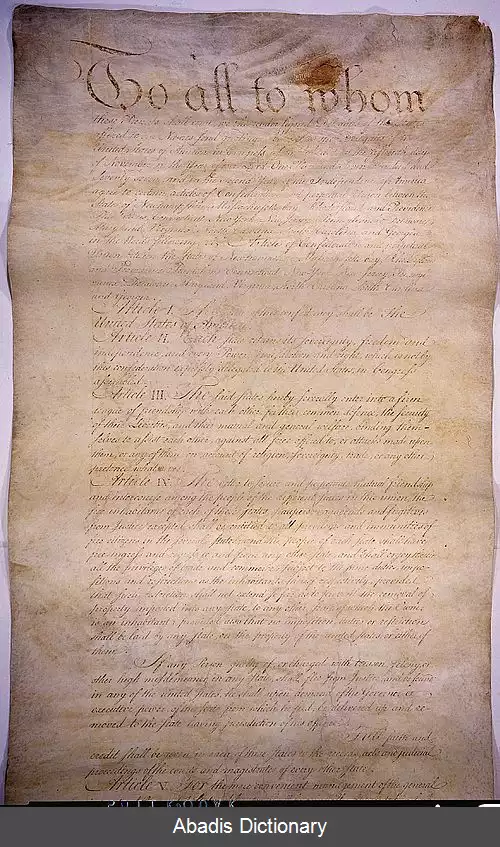 To all to whom
these Presents shall come, we the under signed Delegates of the States
affixed to our Names send greeting.
United States of America in Congress assembled did on the fifteenth day
of November in the Year of our Lord One Thousand Seven Hundred and
Seventy seven, and in the Second Year of the Independence of America
agree to certain articles of Confederation and perpetual Union between the
States of Newhampshire, Massachusetts-bay, Rhodeisland and Providence
Connecticut, New York, New Jersey, Pennsylvania, Delaware,
Maryland, Virginia, North Carolina, South Carolina and Georgia
in the Words following, viz. Articles of Confederation and perpetual
Union between the States of Newhampshire, Massachusetts-bay, Rhodeisland
and Providence Plantations, Connecticut, New York, New Jersey, Pennsyl
vania, Delaware, Maryland, Virginia, North Carolina, South Carolina
and Georgia
Article I. The Stile of this confederacy shall be "The
United States of America."
Article II. Each state retains its sovereignty, freedom and
independence, and every Power, Jurisdiction and right, which is not by
this confederation expressly delegated to the United States, in Congress
assembled.
Article III. The said states hereby severally enter into a firm
league of friendship with each other, for their common defence, the security
of their Liberties, and their mutual and general welfare, binding them-
selves to assist each other, against all force offered to, or attacks made upon
them, or any of them, on account of religion, sovereignty, trade, or any other
pretence whatever.
Article IV. The better to secure and perpetuate mutual friendship
and intercourse among the people of the different states in this union, the
free inhabitants of each of these states, paupers, vagabonds and fugitives
from Justice excepted, shall be entitled to all privileges and immunities of
free citizens in the several states; and the people of each state shall have
free ingress and regress to and from any other state, and shall enjoy therein
all the privileges of trade and commerce, subject to the same duties, impo-
sitions and restrictions as the inhabitants thereof respectively, provided
that such restriction shall not extend so far as to prevent the removal of
property imported into any state, to any other state of which the Owner
is an inhabitant; provided also that no imposition, duties or restriction
shall be laid by any state, on the property of the united states, or either of
them.
If any Person guilty of, or charged with treason, felony, or
other high misdemeanor in any state, shall flee from Justice, and be found
in any of the united states, he shall upon demand of the Governor or
executive power, of the state from which he fled, be delivered up and re-
moved to the state having jurisdiction of his offence.
Full faith and
credit shall be given in each of these states to the records, acts and judicial
proceedings of the courts and magistrates of every other state.
Article V. For the more convenient management of the general
Abadis Dictionary